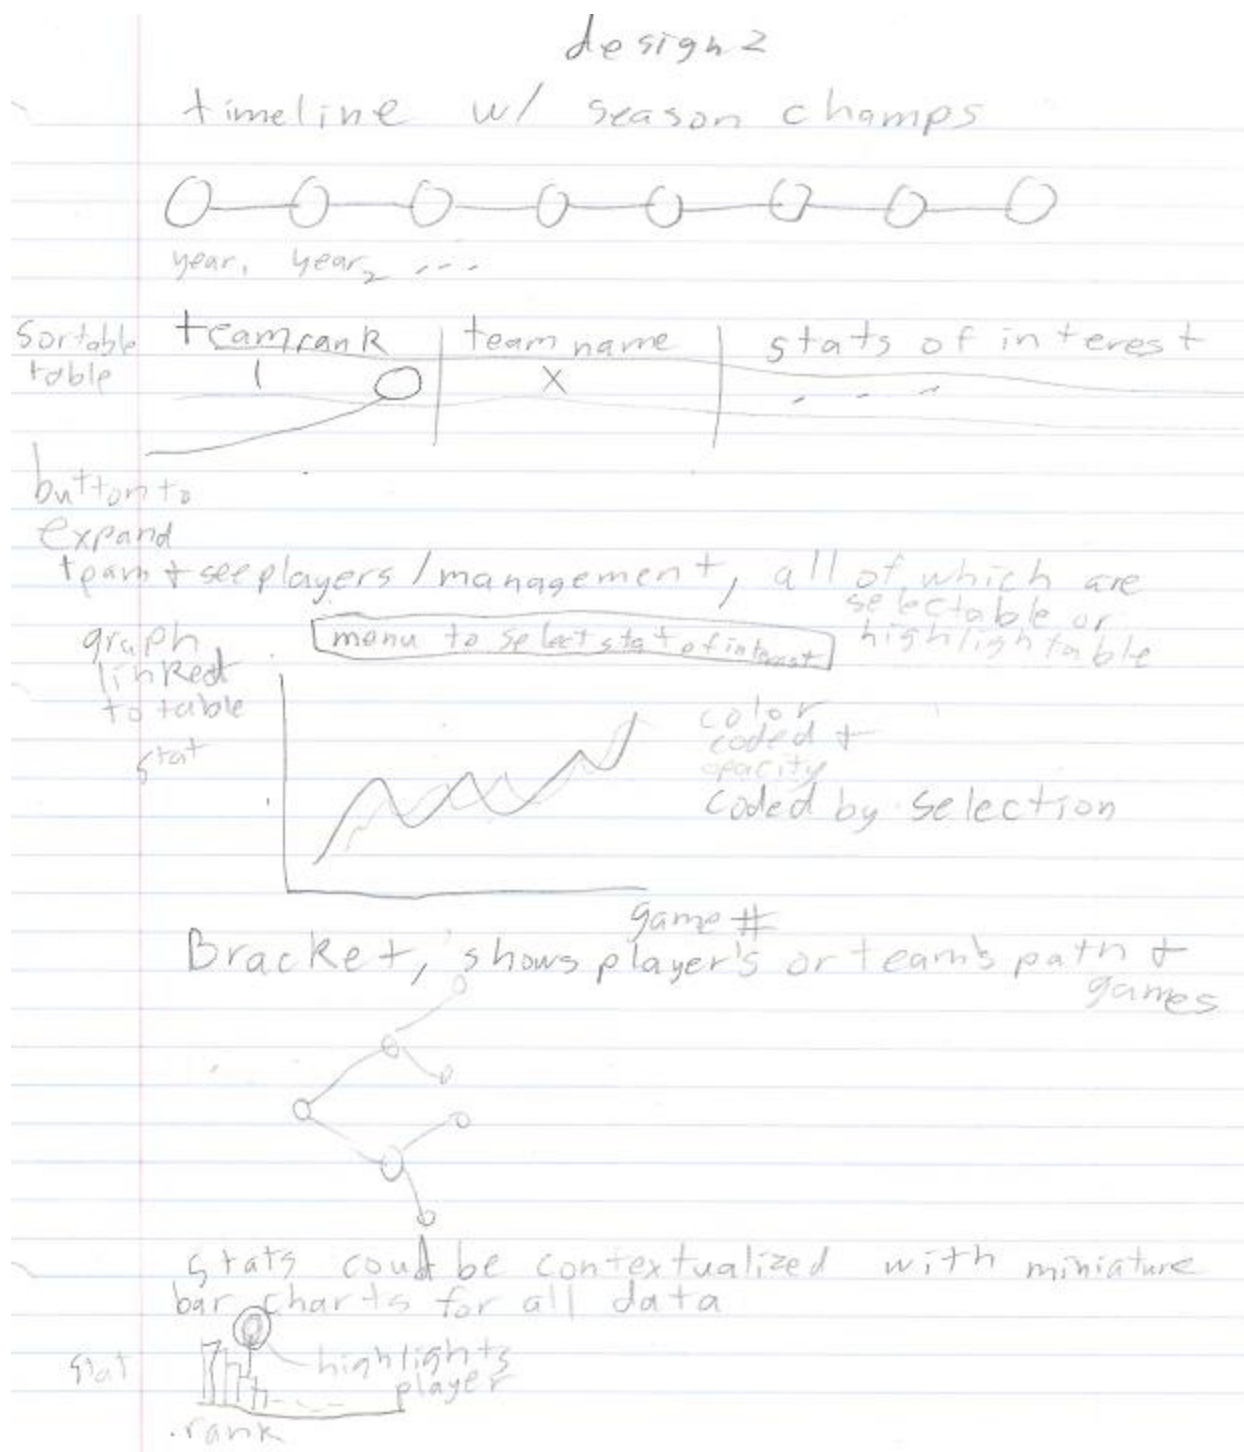 design 2
timeline w/ season champs
year, year2 ...
sortable
table
team rank | team name | stats of interest
1 X - - -
button to
expand
team + see players / management, all of which are
selectable or
highlightable
menu to select stat of interest
graph
linked
to table
stat
color
coded +
opacity
coded by selection
game #
Bracket, shows player's or team's path +
games
stats could be contextualized with miniature
bar charts for all data
stat
highlights
player
rank